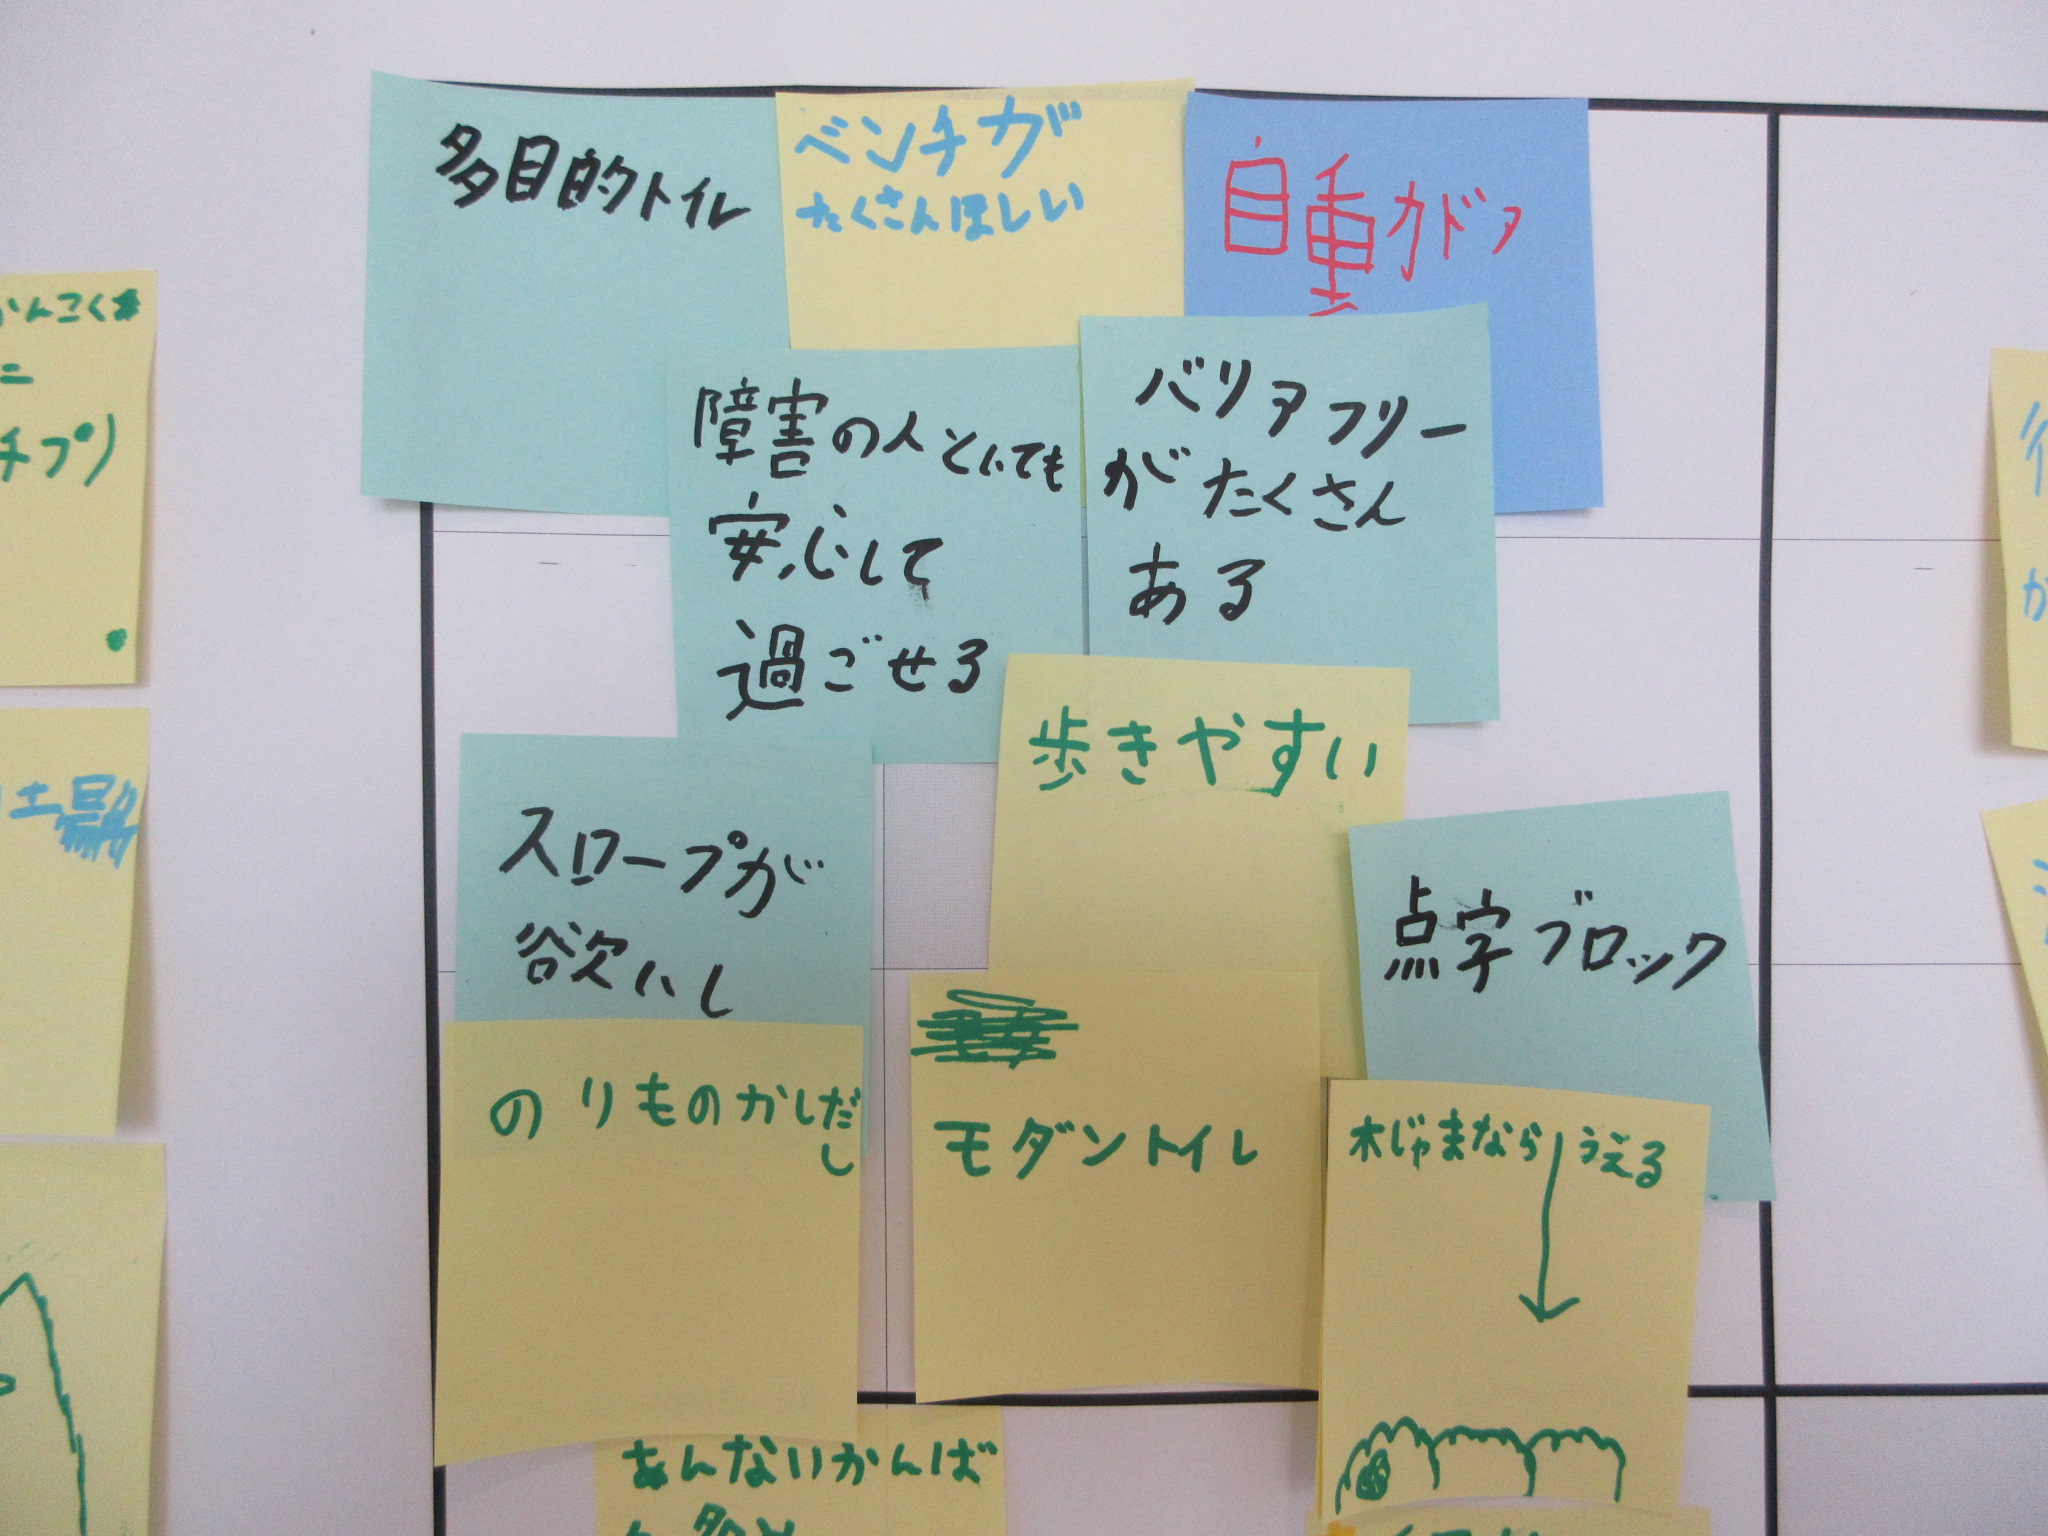 多目的トイレ
ベンチが
たくさんほしい
自重力ドア
障害の人とかでも
安心して
過ごせる
バリアフリー
がたくさん
ある
スロープが
欲いし
歩きやすい
点字ブロック
のりものかしだ
し
モダントイレ
木じゃまなら
うえる
あんないかんば
チプリ